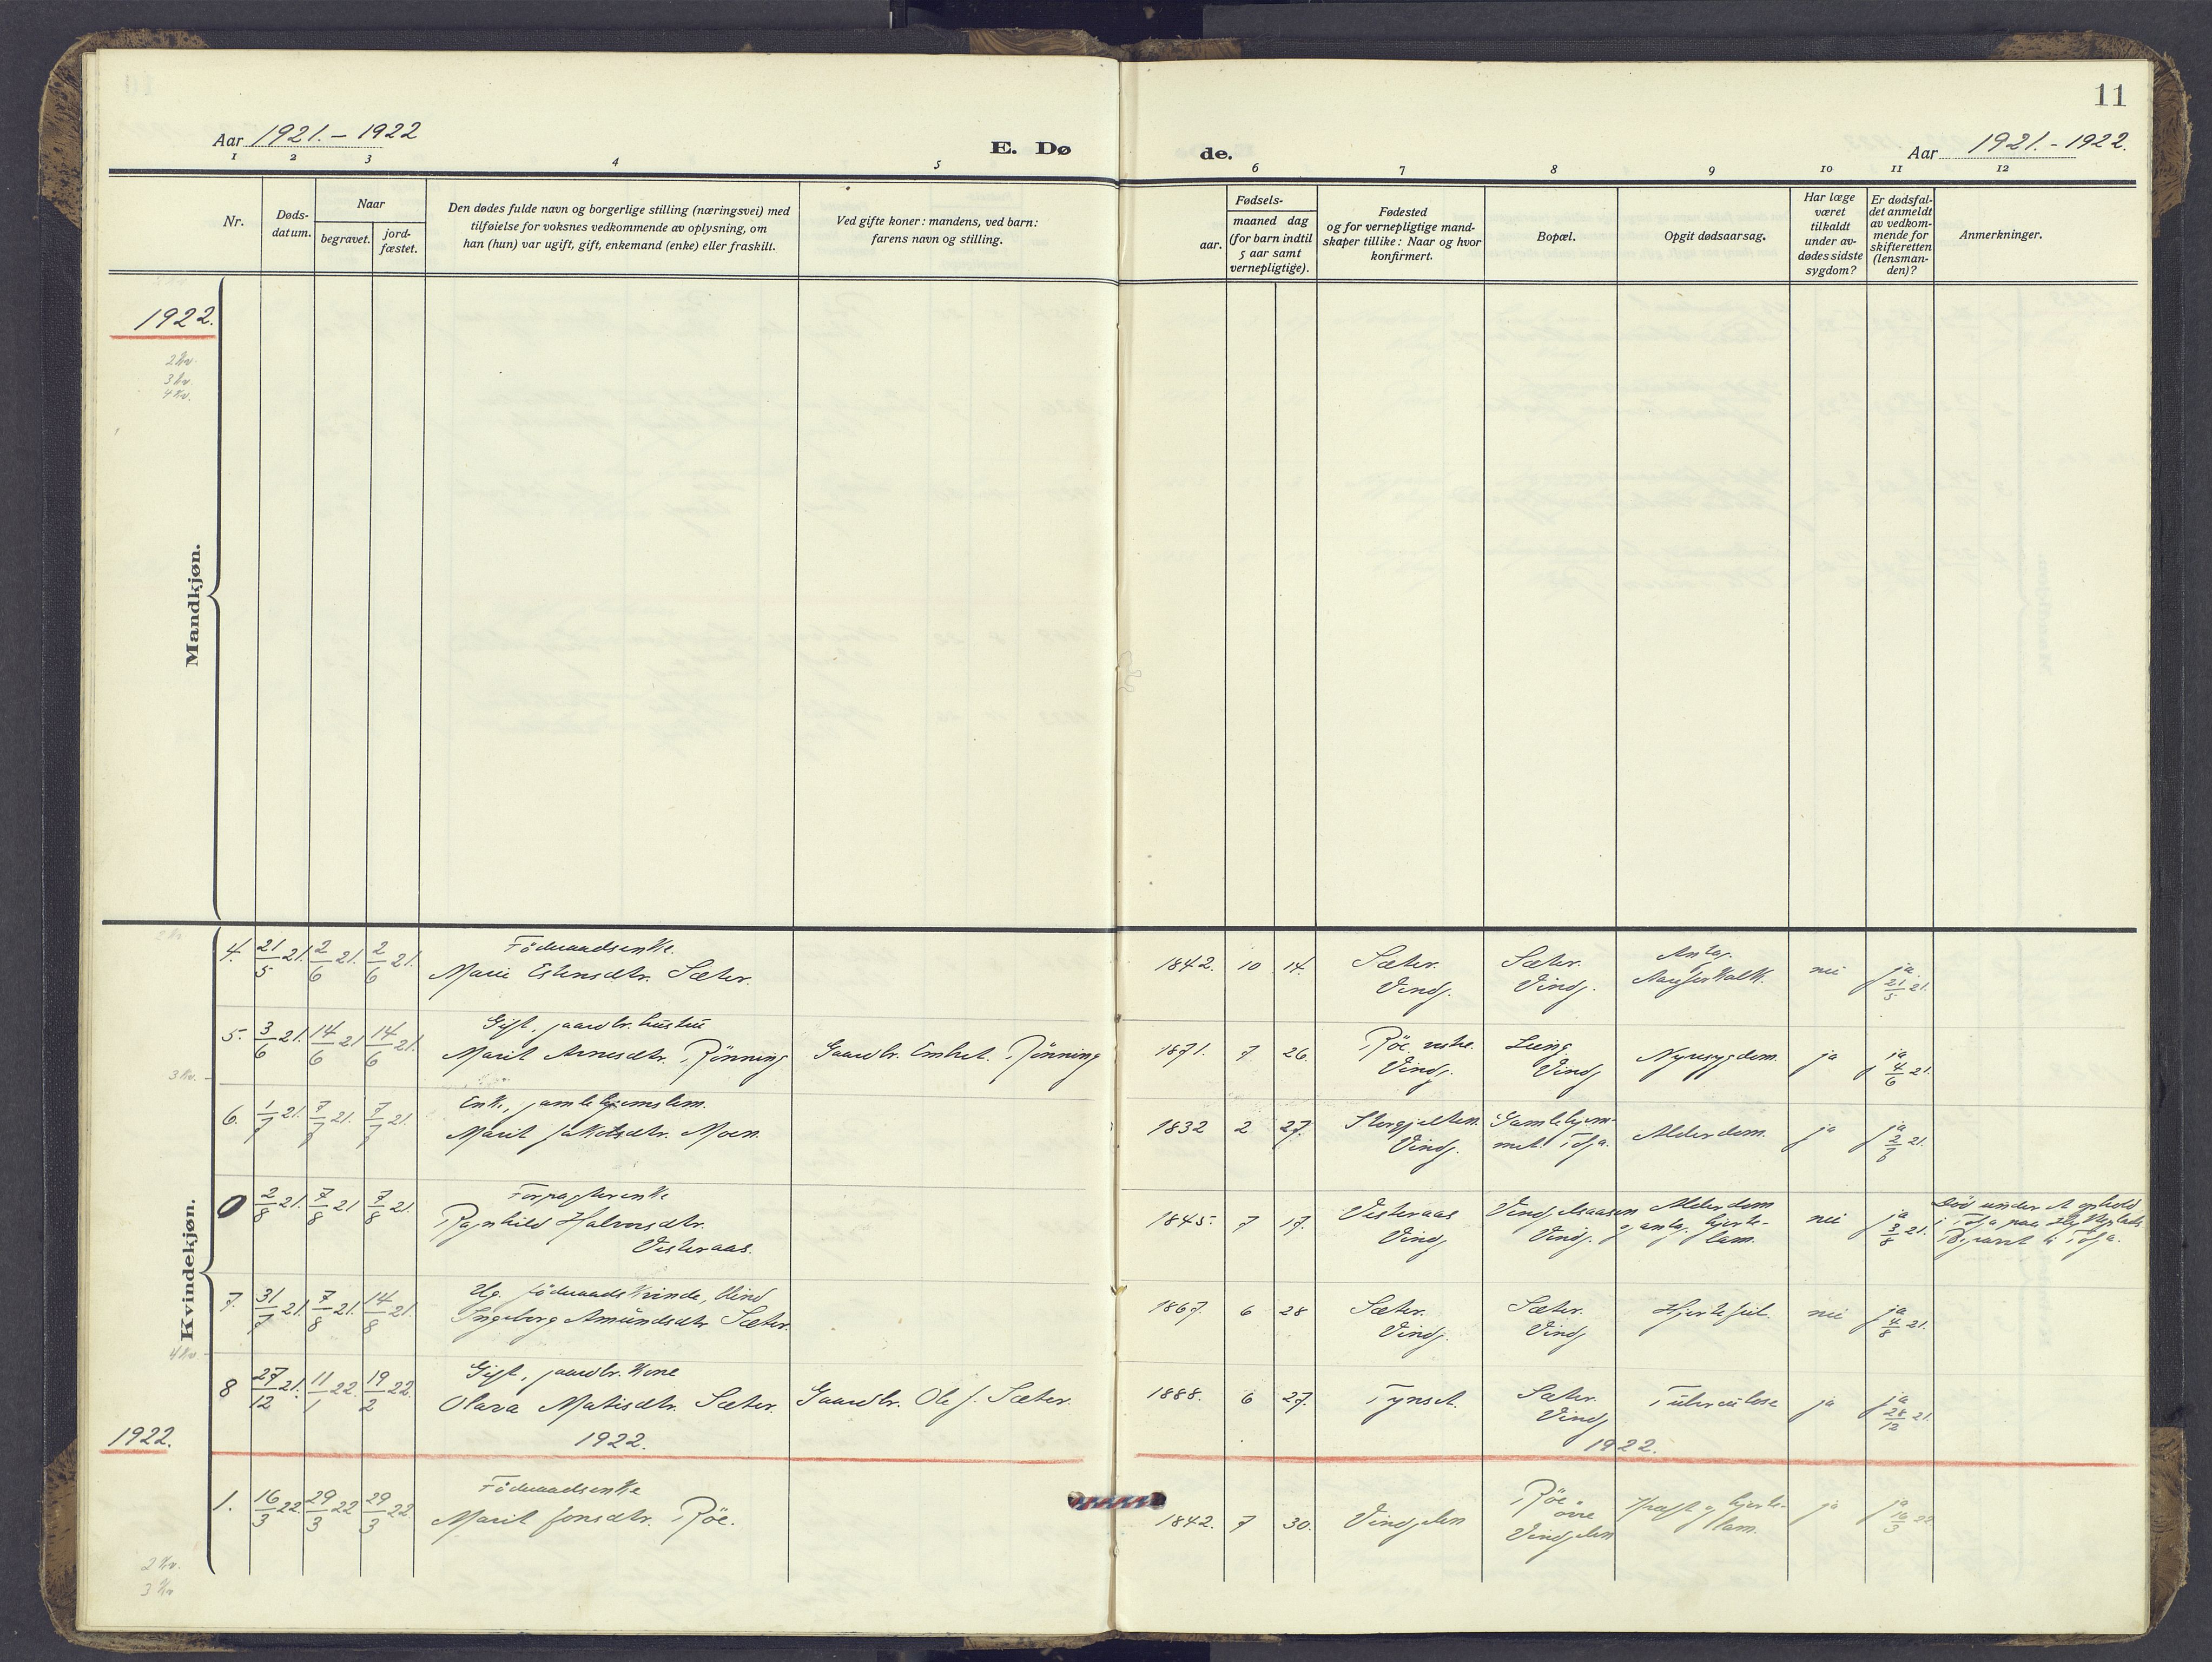 11
Aar 1921. – 1922
E. Dø
de.
Aar 1921. – 1922.
1 2 3 4 5 6 7 8 9 10 11 12
Nr.
Døds-
datum.
Naar
begravet.
jord-
fæstet.
Den dødes fulde navn og borgerlige stilling (næringsvei) med
tilføielse for voksnes vedkommende av oplysning, om
han (hun) var ugift, gift, enkemand (enke) eller fraskilt.
Ved gifte koner: mandens, ved barn:
farens navn og stilling.
Fødsels-
aar.
maaned dag
(for barn indtil
5 aar samt
vernepligtige).
Fødested
og for vernepligtige mand-
skaper tillike: Naar og hvor
konfirmert.
Bopæl.
Opgit dødsaarsag.
Har læge
været
tilkaldt
under av-
dødes sidste
sygdom?
Er dødsfal-
det anmeldt
av vedkom-
mende for
skifteretten
(lensman-
den)?
Anmerkninger.
1922.
2 Kv.
3 Kv.
4 Kv.
Mandkjøn.
Kvindekjøn.
4. 21/5 21. 2/6 21. 2/6 21.
Föderaadsenke.
Marie Estensdtr. Sæter.
1842. 10 14.
Sæter.
Vingj.
Sæter.
Vingj.
Antag.
nei
ja
21/5 21.
5. 3/6 21. 14/6 21 14/6 21.
Gift, gaardbr. hustru
Marit Arnesdtr. Rönning
Gaardbr. Embret. Rönning
1871. 7 26.
Röe vestre.
Vingj.
Vingj
Nyresygdom.
ja
ja
4/6 21.
3 Kv.
6. 1/7 21. 7/7 21. 7/7 21.
Enke, gamlehjemslem.
Marit Jakobsdtr. Moen.
1832 2 27.
Vingj.
Gamlehjem-
met Tolga.
Alderdom.
ja
ja
2/7 21.
0 2/8 21. 7/8 21 7/8 21.
Forpagterenke
Ragnhild Halvorsdtr.
Vesteraas.
1845. 7 17.
Vesteraas
Vingj
Vingelsaasen
Vingj.
Alderdom
og antag. hjerte-
lam.
nei
ja
3/8 21.
Död under et ophold
i Tolga paa
Begravet i Tolga.
7. 31/7 21. 7/8 21. 14/8 21.
Ug. föderaadskvinde, blind
Ingeborg Amundsdtr Sæter.
1867. 6 28
Sæter.
Vingj.
Sæter.
Vingj
Hjertefeil.
nei
ja
4/8 21.
4 Kv.
8 27/12 21. 11/1 22. 19/2 22.
Gift, gaardbr. kone
Olava Matisdtr. Sæter.
Gaardbr. Ole J. Sæter.
1888. 6 27.
Tynset.
Sæter.
Vingj
Tuberculose
ja
ja
28/12 21.
1922.
1922.
1922.
1. 16/3 22. 29/3 22 29/3 22.
Föderaadsenke
Marit Jonsdtr. Röe.
1842. 7 30.
Vingelen
Röe
övre
Vingelen
Kræft og hjerte-
lam.
ja
ja
2 Kv.
3 Kv